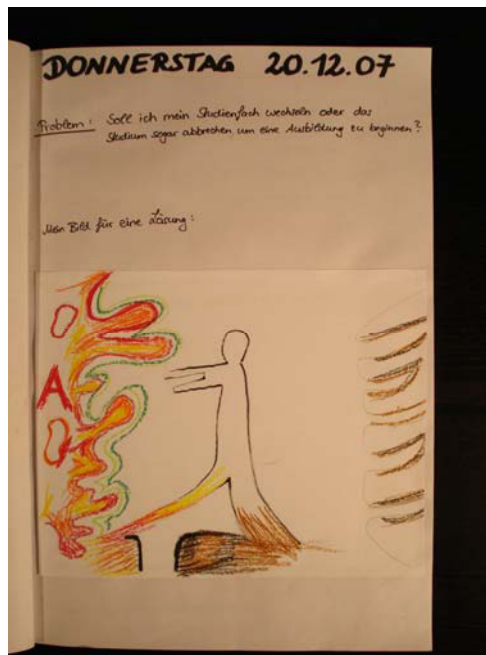 DONNERSTAG 20.12.07
Problem: Soll ich mein Studienfach wechseln oder das
Studium sogar abbrechen um eine Ausbildung zu beginnen?
Mein Bild für eine Lösung:
A